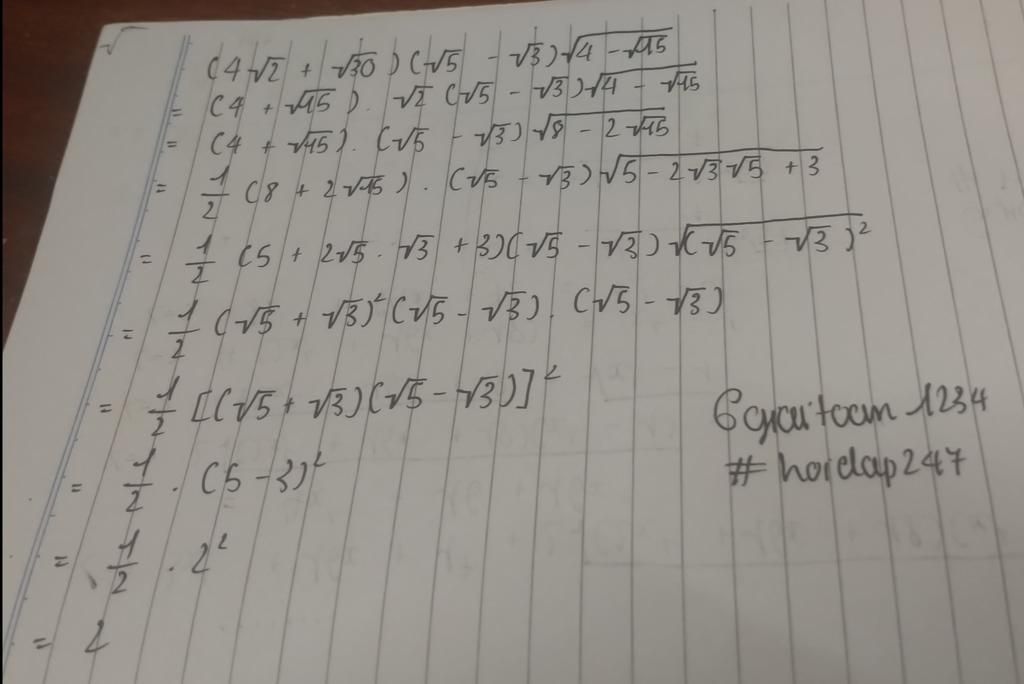 √
(4√2 + √30)(√5 - √3)√(4 - √15)
= (4 + √15). √2 (√5 - √3)√(4 - √15)
= (4 + √15). (√5 - √3) √(8 - 2√15)
= 1/2 (8 + 2√15). (√5 - √3) √(5 - 2√3√5 + 3)
= 1/2 (5 + 2√5. √3 + 3)(√5 - √3) √(√5 - √3)²
= 1/2 (√5 + √3)² (√5 - √3). (√5 - √3)
= 1/2 [(√5 + √3)(√5 - √3)]²
= 1/2 . (5 - 3)²
= 1/2 . 2²
= 2
#hoidap247